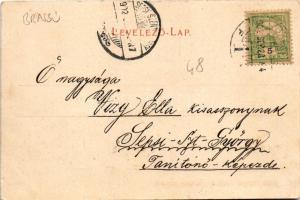 BRASSÓ
LEVELEZŐ-LAP.
48
Ő nagysága
Vozy Ella kisasszonynak
Sepsi-Szt-György
Tanitónő-képezde.